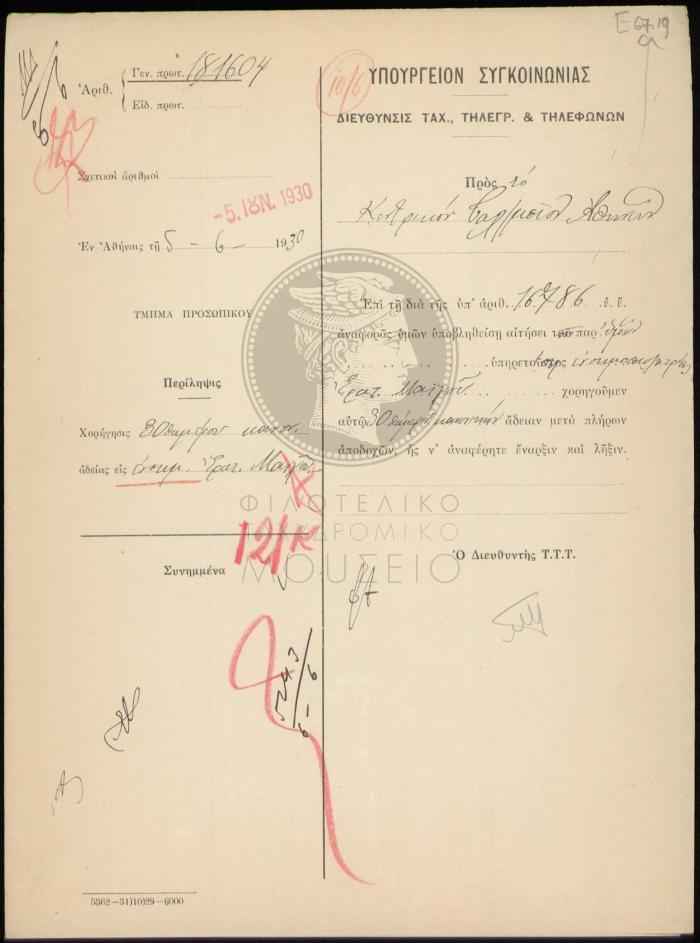 Ε 67.19
α
Ἀριθ.
Γεν. πρωτ. 181604
Εἰδ. πρωτ.
Σχετικοὶ ἀριθμοὶ
-5. ΙΟΥΝ. 1930
Ἐν Ἀθήναις τῇ 5 - 6 - 1930
ΤΜΗΜΑ ΠΡΟΣΩΠΙΚΟΥ
Περίληψις
Χορήγησις 30θημέρου κανον.
ἀδείας εἰς Ἐρατ.
Συνημμένα
10/6
ΥΠΟΥΡΓΕΙΟΝ ΣΥΓΚΟΙΝΩΝΙΑΣ
ΔΙΕΥΘΥΝΣΙΣ ΤΑΧ., ΤΗΛΕΓΡ. & ΤΗΛΕΦΩΝΩΝ
Πρὸς τὸ
Κεντρικόν Ἀθηνῶν
Ἐπὶ τῇ διὰ τῆς ὑπ' ἀριθ. 16786 ἐ. ἔ.
ἀναφορᾶς ὑμῶν ὑποβληθείσῃ αἰτήσει παρ' ὑμῖν
ὑπηρετούσης
Ἐρατ. χορηγοῦμεν
αὐτῇ 30θήμερον κανονικὴν ἄδειαν μετὰ πλήρων
ἀποδοχῶν, ἧς ν' ἀναφέρητε ἔναρξιν καὶ λῆξιν.
Ὁ Διευθυντὴς Τ.Τ.Τ.
ΦΙΛΟΤΕΛΙΚΟ
ΤΑΧΥΔΡΟΜΙΚΟ
ΜΟΥΣΕΙΟ
5243
6 - 6
5362—31)10)29—6000